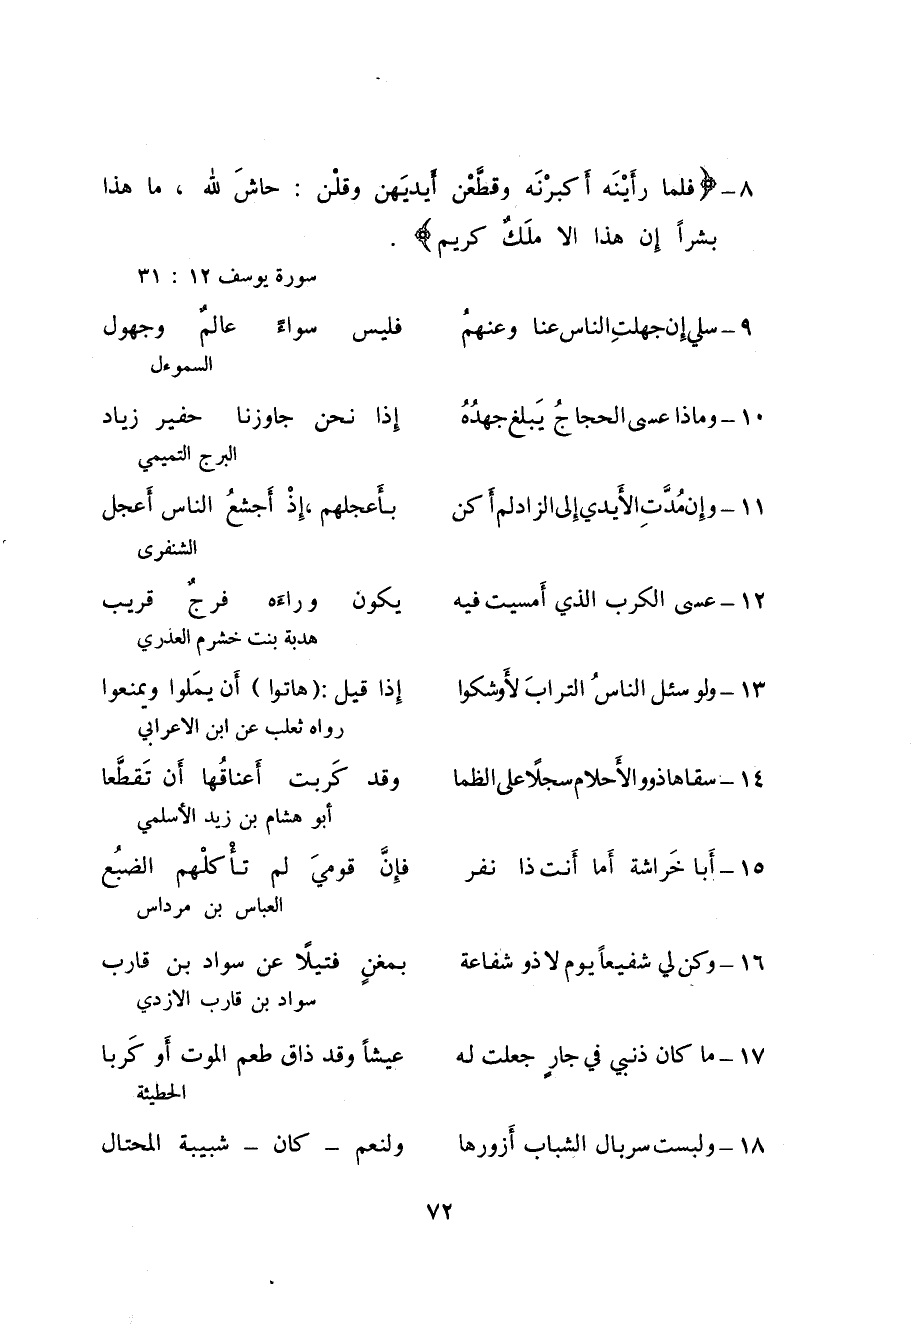 ٨ـ﴿فلما رأَيْنَه أَكبرْنَه وقطَّعْن أَيديَهن وقلْن : حاشَ لله ، ما هذا
بشراً إن هذا الا ملَكٌ كريم﴾ .
سورة يوسف ١٢ : ٣١
٩ـ سلي إن جهلتِ الناس عنا وعنهمُ فليس سواءً عالمٌ وجهول
السموءل
١٠ـ وماذا عسى الحجاجُ يَبلغ جهدُهُ إذا نحن جاوزنا حفير زياد
البرج التميمي
١١ـ وإن مُدَّتِ الأَيدي إلى الزاد لم أَكن بأَعجلهم ،إذْ أَجشعُ الناس أَعجل
الشنفرى
١٢ـ عسى الكرب الذي أَمسيت فيه يكون وراءَه فرجٌ قريب
هدبة بنت خشرم العذري
١٣ـ ولو سئل الناسُ الترابَ لأَوشكوا إذا قيل :(هاتوا ) أَن يمَلوا ويمنعوا
رواه ثعلب عن ابن الاعرابي
١٤ـ سقاها ذوو الأَحلام سجلًا على الظما وقد كَربت أَعناقُها أَن تَقطَّعا
أبو هشام بن زيد الأسلمي
١٥ـ أَبا خَراشة أَما أَنت ذا نفر فإنَّ قوميَ لم تأْكلْهم الضبُع
العباس بن مرداس
١٦ـ وكن لي شفيعاً يوم لا ذو شفاعة بمغنٍ فتيلًا عن سواد بن قارب
سواد بن قارب الازدي
١٧ـ ما كان ذنبي في جارٍ جعلت له عيشاً وقد ذاق طعم الموت أَو كَربا
الحطيئة
١٨ـ ولبست سربال الشباب أَزورها ولنعم ـ كان ـ شبيبة المحتال
٧٢